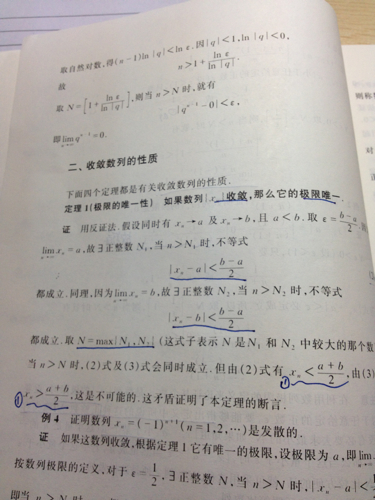 取自然对数,得(n-1)ln|q|<ln ε.因|q|<1,ln|q|<0,
故 n>1+ln ε/ln|q|.
取N=[1+ln ε/ln|q|],则当n>N时,就有
|qⁿ⁻¹-0|<ε,
即lim qⁿ⁻¹=0.
n→∞
二、收敛数列的性质
下面四个定理都是有关收敛数列的性质.
定理1(极限的唯一性) 如果数列{xₙ}收敛,那么它的极限唯一.
证 用反证法.假设同时有xₙ→a及xₙ→b,且a<b.取ε=(b-a)/2.
lim xₙ=a,故∃正整数N₁,当n>N₁时,不等式
n→∞
|xₙ-a|<(b-a)/2
都成立.同理,因为lim xₙ=b,故∃正整数N₂,当n>N₂时,不等式
n→∞
|xₙ-b|<(b-a)/2
都成立.取N=max{N₁,N₂}(这式子表示N是N₁和N₂中较大的那个数
当n>N时,(2)式及(3)式会同时成立.但由(2)式有xₙ<(a+b)/2,由(3)
①
① xₙ>(a+b)/2,这是不可能的.这矛盾证明了本定理的断言.
例4 证明数列xₙ=(-1)ⁿ⁺¹(n=1,2,…)是发散的.
证 如果这数列收敛,根据定理1它有唯一的极限,设极限为a,即lim
按数列极限的定义,对于ε=1/2,∃正整数N,当n>N时,|xₙ-a|<
即当n>N时
则称
对